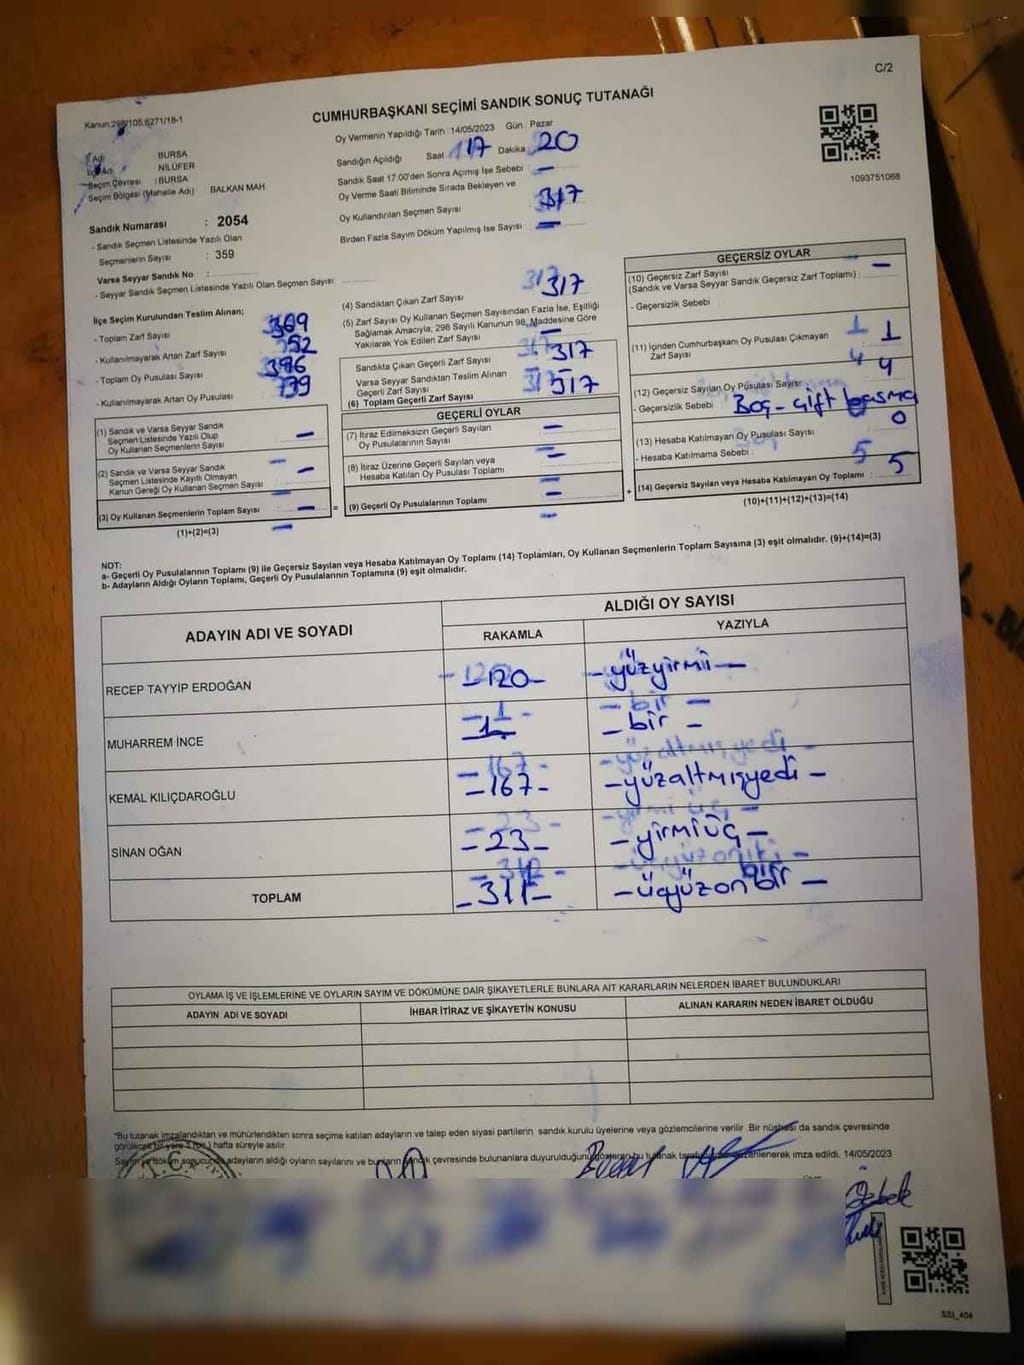 C/2
Kanun:298/105,6271/18-1
CUMHURBAŞKANI SEÇİMİ SANDIK SONUÇ TUTANAĞI
Oy Vermenin Yapıldığı Tarih :14/05/2023 Gün : Pazar
İl Adı : BURSA
İlçe Adı : NİLÜFER
Seçim Çevresi : BURSA
Seçim Bölgesi (Mahalle Adı) : BALKAN MAH
Sandığın Açıldığı Saat 17 Dakika 20
Sandık Saat 17:00'den Sonra Açımış İse Sebebi : –
Oy Verme Saati Bitiminde Sırada Bekleyen ve
Oy Kullandırılan Seçmen Sayısı 317
Birden Fazla Sayım Döküm Yapılmış İse Sayısı –
1093751068
Sandık Numarası : 2054
- Sandık Seçmen Listesinde Yazılı Olan
Seçmenlerin Sayısı : 359
Varsa Seyyar Sandık No :
- Seyyar Sandık Seçmen Listesinde Yazılı Olan Seçmen Sayısı :
İlçe Seçim Kurulundan Teslim Alınan;
- Toplam Zarf Sayısı 369
- Kullanılmayarak Artan Zarf Sayısı 52
- Toplam Oy Pusulası Sayısı 396
- Kullanılmayarak Artan Oy Pusulası
(1) Sandık ve Varsa Seyyar Sandık
Seçmen Listesinde Yazılı Olup
Oy Kullanan Seçmenlerin Sayısı –
(2) Sandık ve Varsa Seyyar Sandık
Seçmen Listesinde Kayıtlı Olmayan
Kanun Gereği Oy Kullanan Seçmen Sayısı –
(3) Oy Kullanan Seçmenlerin Toplam Sayısı : –
(1)+(2)=(3)
(4) Sandıktan Çıkan Zarf Sayısı 317
(5) Zarf Sayısı Oy Kullanan Seçmen Sayısından Fazla İse, Eşitliği
Sağlamak Amacıyla; 298 Sayılı Kanunun 98. Maddesine Göre
Yakılarak Yok Edilen Zarf Sayısı –
Sandıkta Çıkan Geçerli Zarf Sayısı 317
Varsa Seyyar Sandıktan Teslim Alınan
Geçerli Zarf Sayısı –
(6) Toplam Geçerli Zarf Sayısı 317
GEÇERLİ OYLAR
(7) İtiraz Edilmeksizin Geçerli Sayılan
Oy Pusulalarının Sayısı –
(8) İtiraz Üzerine Geçerli Sayılan veya
Hesaba Katılan Oy Pusulası Toplamı –
(9) Geçerli Oy Pusulalarının Toplamı –
GEÇERSİZ OYLAR
(10) Geçersiz Zarf Sayısı
(Sandık ve Varsa Seyyar Sandık Geçersiz Zarf Toplamı) : –
- Geçersizlik Sebebi
(11) İçinden Cumhurbaşkanı Oy Pusulası Çıkmayan
Zarf Sayısı 1
(12) Geçersiz Sayılan Oy Pusulası Sayısı 4
- Geçersizlik Sebebi : Boş - çift basma
(13) Hesaba Katılmayan Oy Pusulası Sayısı 0
- Hesaba Katılmama Sebebi :
(14) Geçersiz Sayılan veya Hesaba Katılmayan Oy Toplamı : 5
(10)+(11)+(12)+(13)=(14)
NOT:
a- Geçerli Oy Pusulalarının Toplamı (9) ile Geçersiz Sayılan veya Hesaba Katılmayan Oy Toplamı (14) Toplamları, Oy Kullanan Seçmenlerin Toplam Sayısına (3) eşit olmalıdır. (9)+(14)=(3)
b- Adayların Aldığı Oyların Toplamı, Geçerli Oy Pusulalarının Toplamına (9) eşit olmalıdır.
ADAYIN ADI VE SOYADI
ALDIĞI OY SAYISI
RAKAMLA YAZIYLA
RECEP TAYYİP ERDOĞAN –120– –yüzyirmi–
MUHARREM İNCE –1– –bir–
KEMAL KILIÇDAROĞLU –167– –yüzaltmışyedi–
SİNAN OĞAN –23– –yirmiüç–
TOPLAM –311– –üçyüzonbir–
OYLAMA İŞ VE İŞLEMLERİNE VE OYLARIN SAYIM VE DÖKÜMÜNE DAİR ŞİKAYETLERLE BUNLARA AİT KARARLARIN NELERDEN İBARET BULUNDUKLARI
ADAYIN ADI VE SOYADI İHBAR İTİRAZ VE ŞİKAYETİN KONUSU ALINAN KARARIN NEDEN İBARET OLDUĞU
*Bu tutanak imzalandıktan ve mühürlendikten sonra seçime katılan adayların ve talep eden siyasi partilerin sandık kurulu üyelerine veya gözlemcilerine verilir. Bir nüshası da sandık çevresinde
görülecek bir yere 1 (bir) hafta süreyle asılır.
Sayım ve döküm sonucunda adayların aldığı oyların sayılarını ve bunların sandık çevresinde bulunanlara duyurulduğunu gösteren bu tutanak düzenlenerek imza edildi. 14/05/2023
SSI_404